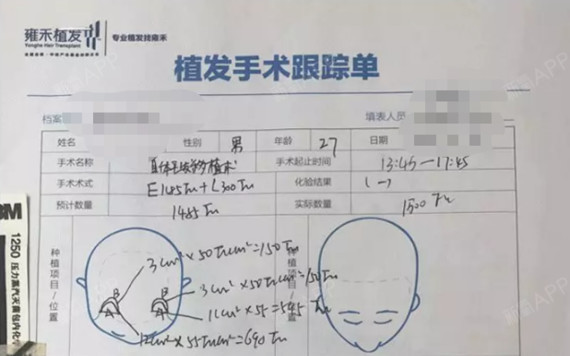 雍禾植发
Yonghe Hair Transplant
专业植发找雍禾
植发手术跟踪单
档案
填表人员
姓名 性别 男 年龄 27 日期
手术名称 自体毛发移植术 手术起止时间 13:45—17:45
手术术式 E1185Tu+L300Tu 化验结果 (—)
预计数量 1485Tu 实际数量 1500Tu
种植项目/位置
3cm²×50Tu/cm²=150Tu
B B
A A
3cm²×50Tu/cm²=150Tu
×55=545Tu
×55Tu/cm²=690Tu
种植项目/位置
3M
1250 压力蒸汽灭菌包内化